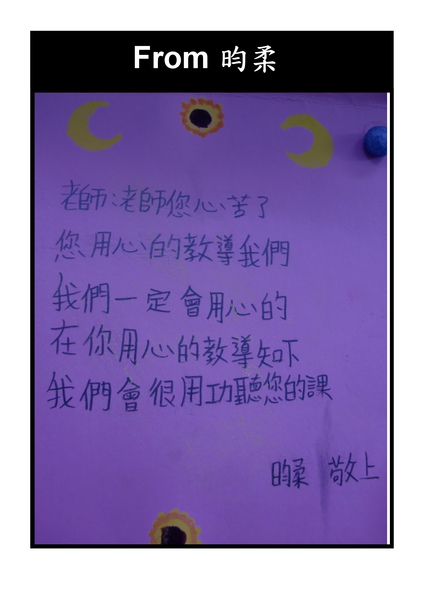 From 昀柔
老師:老師您心苦了
您用心的教導我們
我們一定會用心的
在你用心的教導知下
我們會很用功聽您的課
昀柔 敬上